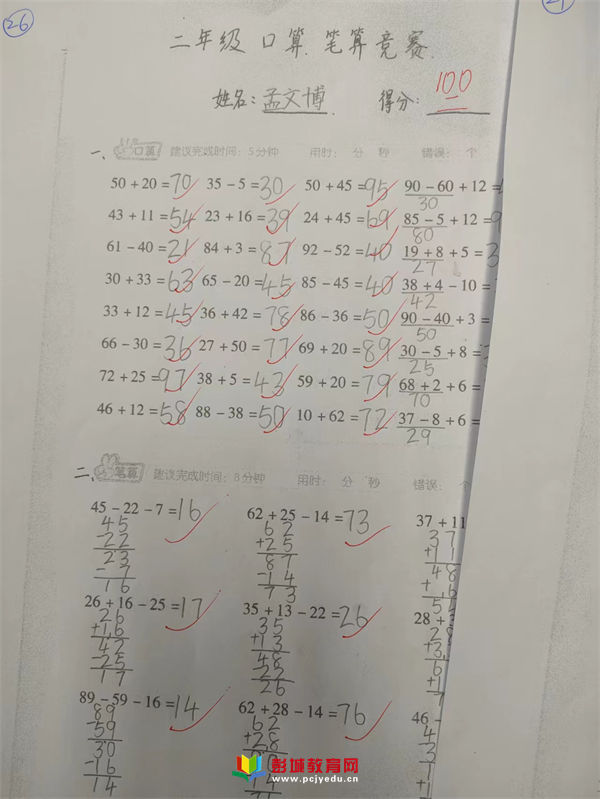 26
二年级 口算、笔算竞赛
姓名:孟文博 得分:100
一、口算 建议完成时间:5分钟 用时: 分 秒 错误: 个
50+20=70 35-5=30 50+45=95 90-60+12=
30
43+11=54 23+16=39 24+45=69 85-5+12=9
80
61-40=21 84+3=87 92-52=40 19+8+5=3
27
30+33=63 65-20=45 85-45=40 38+4-10=
42
33+12=45 36+42=78 86-36=50 90-40+3=
50
66-30=36 27+50=77 69+20=89 30-5+8=
25
72+25=97 38+5=43 59+20=79 68+2+6=
70
46+12=58 88-38=50 10+62=72 37-8+6=
29
二、笔算 建议完成时间:8分钟 用时: 分 秒 错误: 个
45-22-7=16 62+25-14=73 37+11
45 62 37
-22 +25 +11
23 87 48
-7 -14 +6
16 73 5
26+16-25=17 35+13-22=26 28+
26 35 28
+16 +13 +3
42 48 6
-25 -22 +1
17 26 7
89-59-16=14 62+28-14=76 46-
89 62 4
-59 +28 3
30
-16 14
14
彭城教育网
www.pcjyedu.cn